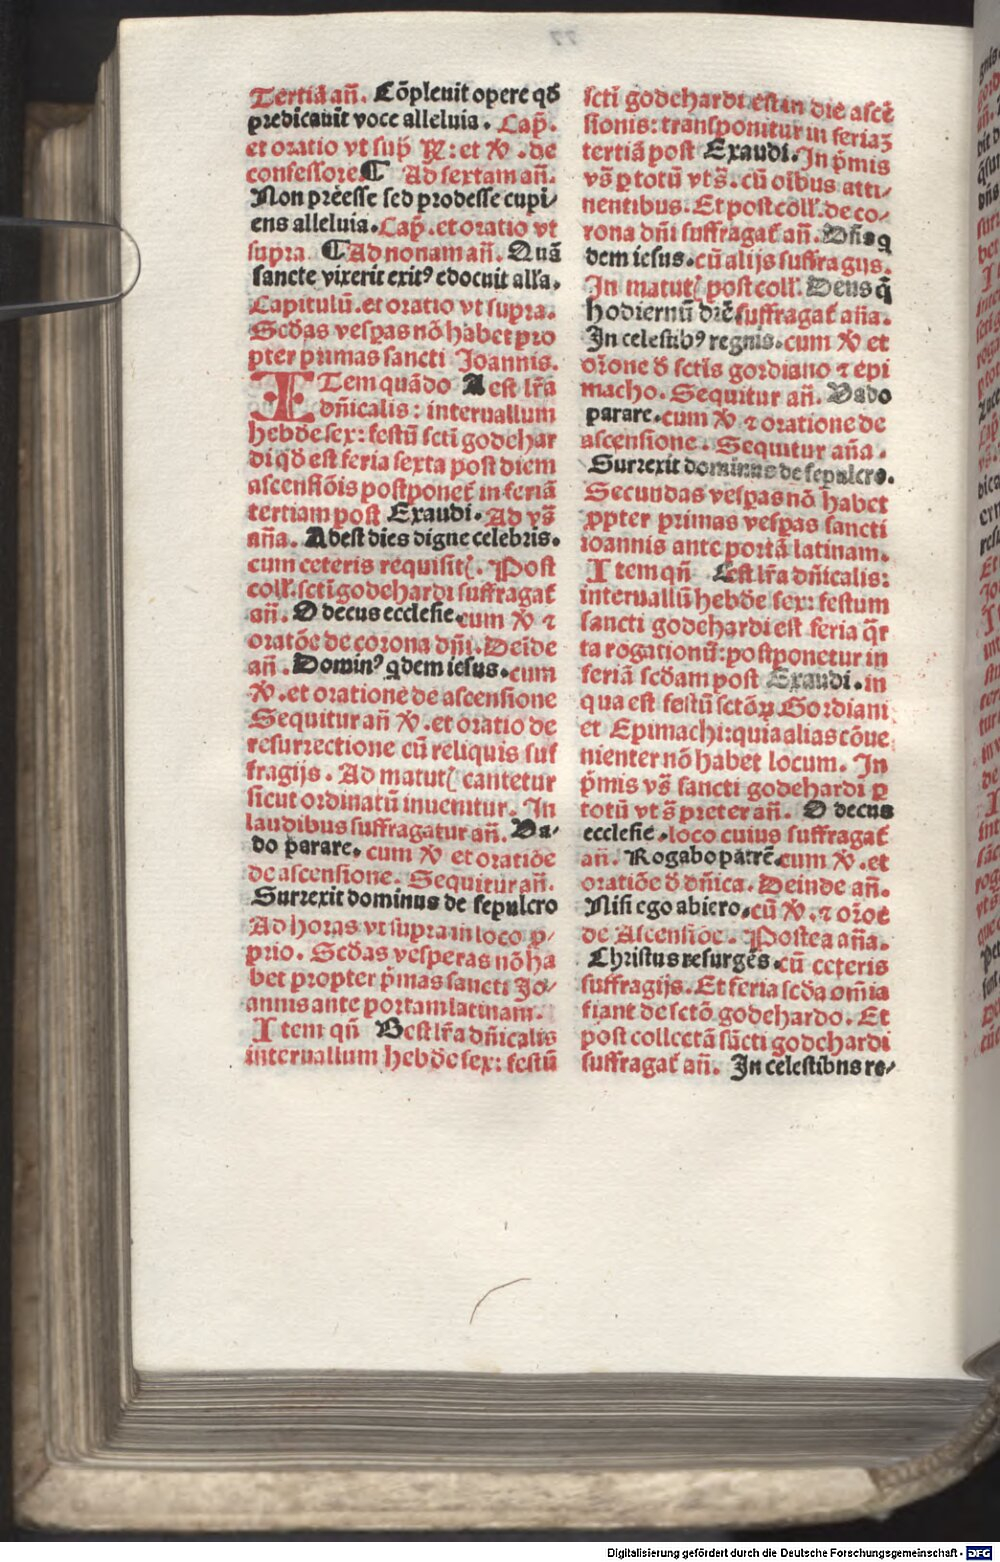 Tertiā añ. Cōpleuit opere qđ
predicauit voce alleluia. Cap̄.
et oratio vt sup̄ ꝶ: et ℣. de
confessore. ¶ Ad sextam añ.
Non preesse sed prodesse cupi⸗
ens alleluia. Cap̄. et oratio vt
supra. ¶ Ad nonam añ. Quā
sancte vixerit exitꝰ edocuit alľa.
Capitulū. et oratio vt supra.
Scđas vespas nō habet pro
pter primas sancti Joannis.
ITem quādo A est lr̄a
dñicalis: interuallum
hebđe sex: festū scti godehar
di qđ est feria sexta post diem
ascensiōis postponet̄ in feriā
tertiam post Exaudi. Ad vs̄
aña. Adest dies digne celebris.
cum ceteris requisit̄. Post
coll̄. scti godehardi suffragat̄
añ. O decus ecclesie. cum ℣ ⁊
oratōe de corona dñi. Deīde
añ. Dominꝰ qdem iesus. cum
℣. et oratione de ascensione
Sequitur añ ℣. et oratio de
resurrectione cū reliquis suf
fragijs. Ad matut̄ cantetur
sicut ordinatū inuenitur. In
laudibus suffragatur añ. Va⸗
do parare. cum ℣ et oratiōe
de ascensione. Sequitur añ.
Surrexit dominus de sepulcro
Ad horas vt supra in loco ꝓ⸗
prio. Scđas vesperas nō ha
bet propter p̄mas sancti Jo⸗
annis ante portam latinam.
Item qñ B est lr̄a dñicalis
interuallum hebđe sex: festū
scti godehardi est in die ascē
sionis: transponitur in feriaʒ
tertiā post Exaudi. In p̄mis
vs̄ ꝑ totū vt s̄. cū oībus atti⸗
nentibus. Et post coll̄. de co⸗
rona dñi suffragat̄ añ. Dñs q
dem iesus. cū alijs suffragijs.
In matut̄ post coll̄. Deus q̄
hodiernū diē suffragat̄ aña.
In celestibꝰ regnis. cum ℣ et
or̄one đ sctis gordiano ⁊ epi
macho. Sequitur añ. Vado
parare. cum ℣ ⁊ oratione de
ascensione. Sequitur aña.
Surrexit dominus de sepulcro.
Secundas vespas nō habet
ꝓpter primas vespas sancti
ioannis ante portā latinam.
Item qñ C est lr̄a dñicalis:
interuallū hebđe sex: festum
sancti godehardi est feria q̄r
ta rogationū: postponetur in
feriā scđam post Exaudi. in
qua est festū sctōꝝ Gordiani
et Epimachi: quia alias cōue
nienter nō habet locum. In
p̄mis vs̄ sancti godehardi ꝑ
totū vt s̄ preter añ. O decus
ecclesie. loco cuius suffragat̄
añ. Rogabo patrē. cum ℣. et
oratiōe đ dñica. Deinde añ.
Nisi ego abiero. cū ℣. ⁊ or̄oē
de Ascensiōe. Postea aña.
Christus resurgēs. cū ceteris
suffragijs. Et feria scđa om̄ia
fiant de sctō godehardo. Et
post collectā sācti godehardi
suffragat̄ añ. In celestibus re⸗
Digitalisierung gefördert durch die Deutsche Forschungsgemeinschaft - DFG